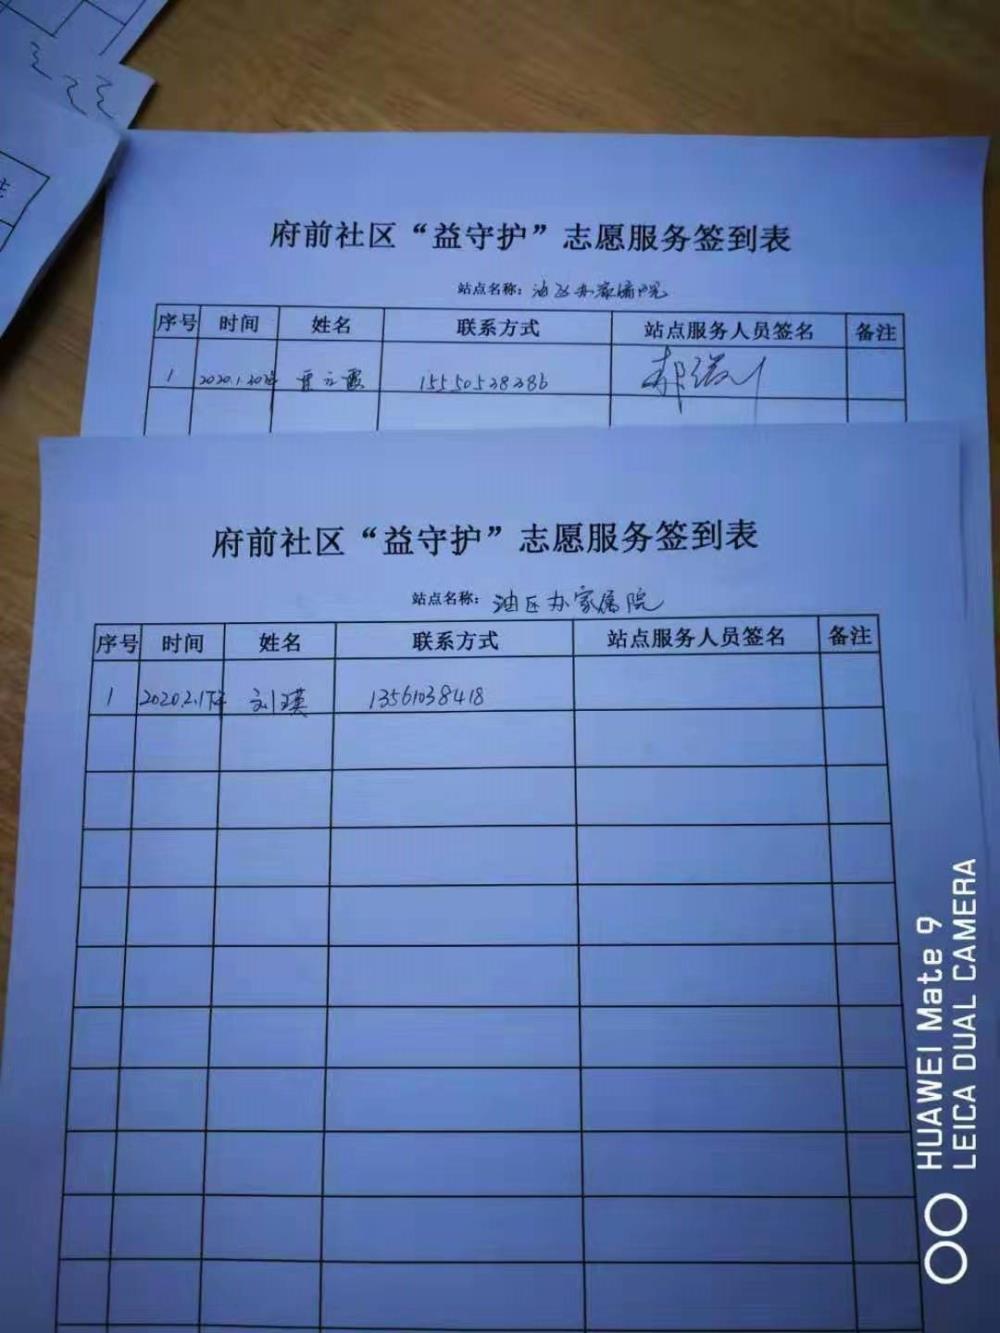 府前社区“益守护”志愿服务签到表
站点名称：油区办家属院
序号 时间 姓名 联系方式 站点服务人员签名 备注
1 2020.1.30下午 霞 15550538386
府前社区“益守护”志愿服务签到表
站点名称：油区办家属院
序号 时间 姓名 联系方式 站点服务人员签名 备注
1 2020.2.1下午 刘瑛 13561038418
HUAWEI Mate 9
LEICA DUAL CAMERA